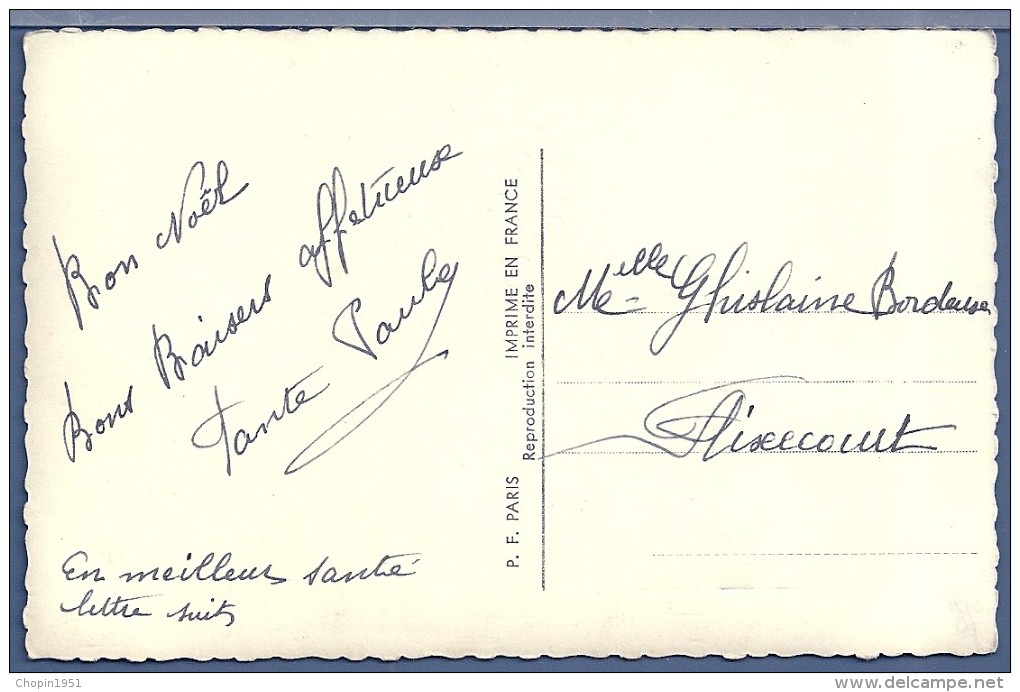 Bon Noël
Bons Baisers affetueux
Tante Paule
En meilleur santé
lettre suit
P. F. PARIS Reproduction interdite IMPRIME EN FRANCE
Melle Ghislaine
Flixecourt
Chopin1951
www.delcampe.net